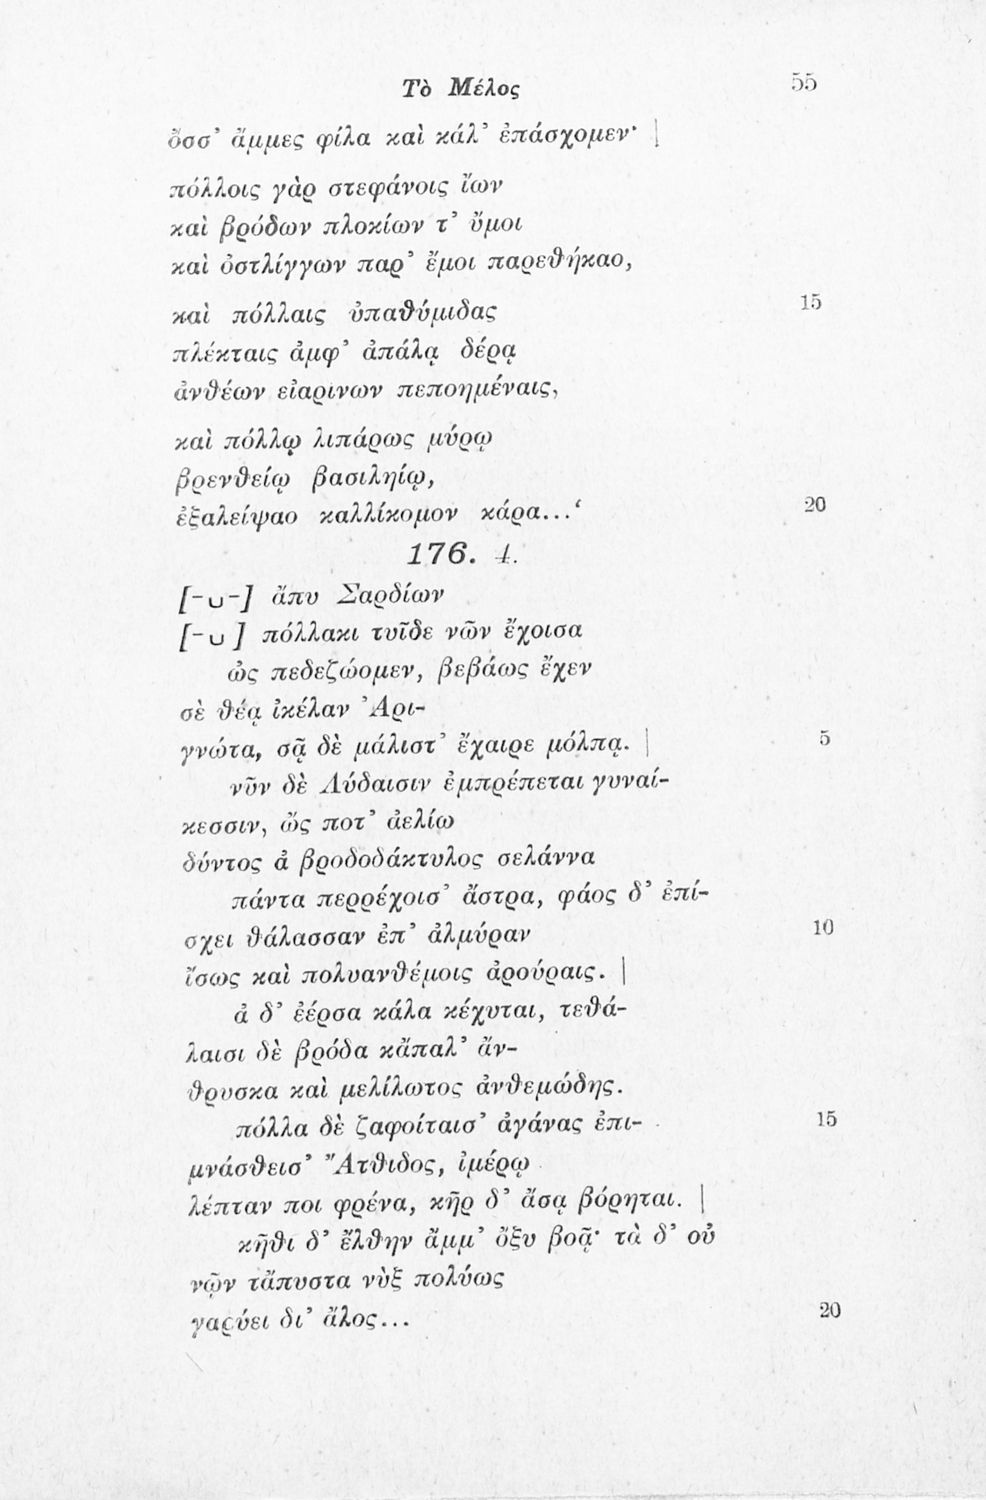 Τὸ Μέλος 55
ὄσσ’ ἄμμες φίλα καὶ κάλ’ ἐπάσχομεν· |
πόλλοις γὰρ στεφάνοις ἴων
καὶ βρόδων πλοκίων τ’ ὔμοι
καὶ ὀστλίγγων παρ’ ἔμοι παρεθήκαο,
καὶ πόλλαις ὐπαθύμιδας 15
πλέκταις ἀμφ’ ἀπάλᾳ δέρᾳ
ἀνθέων εἰαρινων πεποημέναις,
καὶ πόλλῳ λιπάρως μύρῳ
βρενθείῳ βασιληίῳ,
ἐξαλείψαο καλλίκομον κάρα...‘ 20
176. 4.
[-∪-] ἄπυ Σαρδίων
[-∪ ] πόλλακι τυῖδε νῶν ἔχοισα
ὠς πεδεζώομεν, βεβάως ἔχεν
σὲ θέᾳ ἰκέλαν Ἀρι-
γνώτα, σᾷ δὲ μάλιστ’ ἔχαιρε μόλπᾳ. | 5
νῦν δὲ Λύδαισιν ἐμπρέπεται γυναί-
κεσσιν, ὤς ποτ’ ἀελίω
δύντος ἀ βροδοδάκτυλος σελάννα
πάντα περρέχοισ’ ἄστρα, φάος δ’ ἐπί-
σχει θάλασσαν ἐπ’ ἀλμύραν 10
ἴσως καὶ πολυανθέμοις ἀρούραις. |
ἀ δ’ ἐέρσα κάλα κέχυται, τεθά-
λαισι δὲ βρόδα κἄπαλ’ ἄν-
θρυσκα καὶ μελίλωτος ἀνθεμώδης.
πόλλα δὲ ζαφοίταισ’ ἀγάνας ἐπι- 15
μνάσθεισ’ Ἄτθιδος, ἰμέρῳ
λέπταν ποι φρένα, κῆρ δ’ ἄσᾳ βόρηται. |
κῆθι δ’ ἔλθην ἄμμ’ ὄξυ βοᾷ· τὰ δ’ οὐ
νῷν τἄπυστα νὺξ πολύως
γαρύει δι’ ἄλος... 20